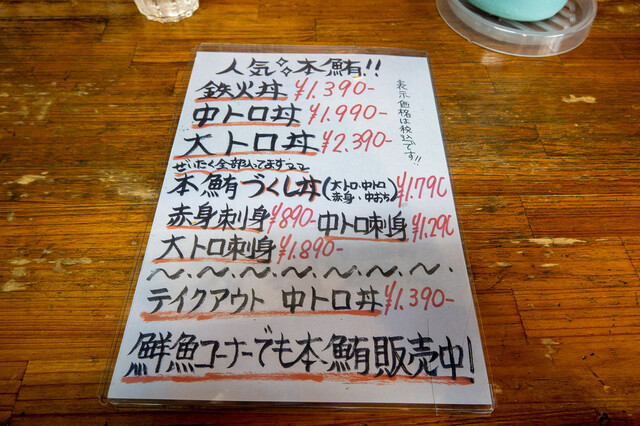 人気✧✧本鮪!!
鉄火丼 ¥1.390-
中トロ丼 ¥1.990-
大トロ丼 ¥2.390-
表示価格は税込です!!
ぜいたく全部入ってます
本鮪づくし丼(大トロ・中トロ
赤身・中おち) ¥1.790
赤身刺身 ¥890- 中トロ刺身 ¥1.290
大トロ刺身 ¥1.890-
テイクアウト 中トロ丼 ¥1.390-
鮮魚コーナーでも本鮪販売中!